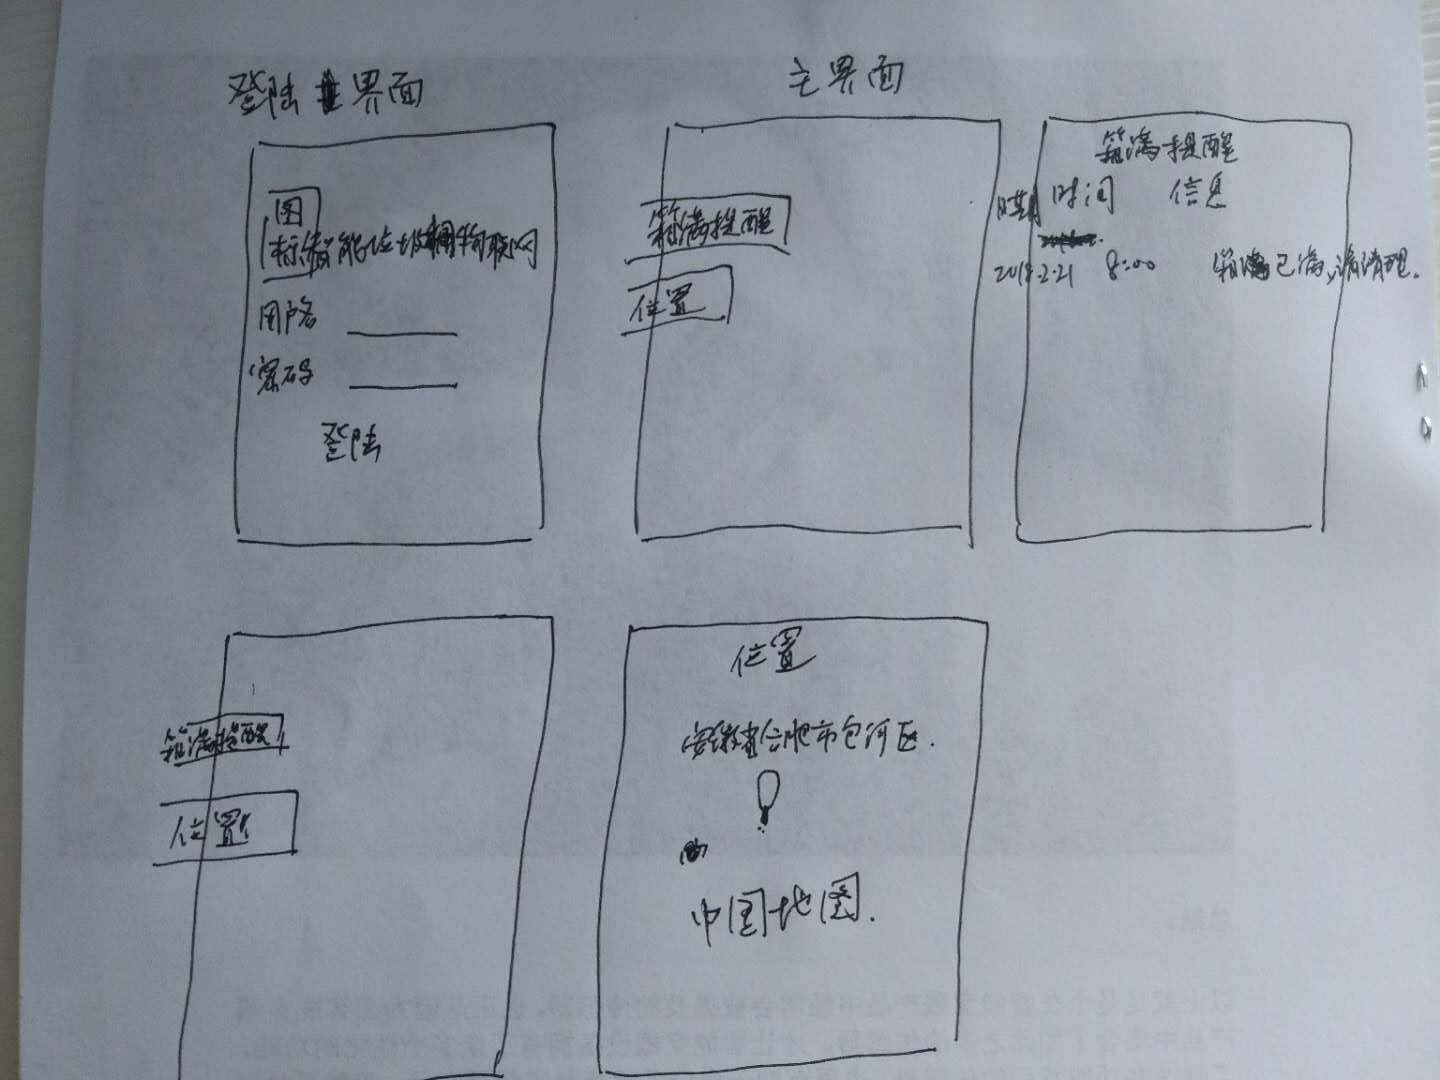 登陆界面
主界面
图
标 智能垃圾桶物联网
用户名
密码
登陆
箱满提醒
位置
箱满提醒
日期 时间 信息
2018.2.21 8:00 箱已满,请清理.
箱满提醒
位置
位置
安徽省合肥市包河区.
中国地图.